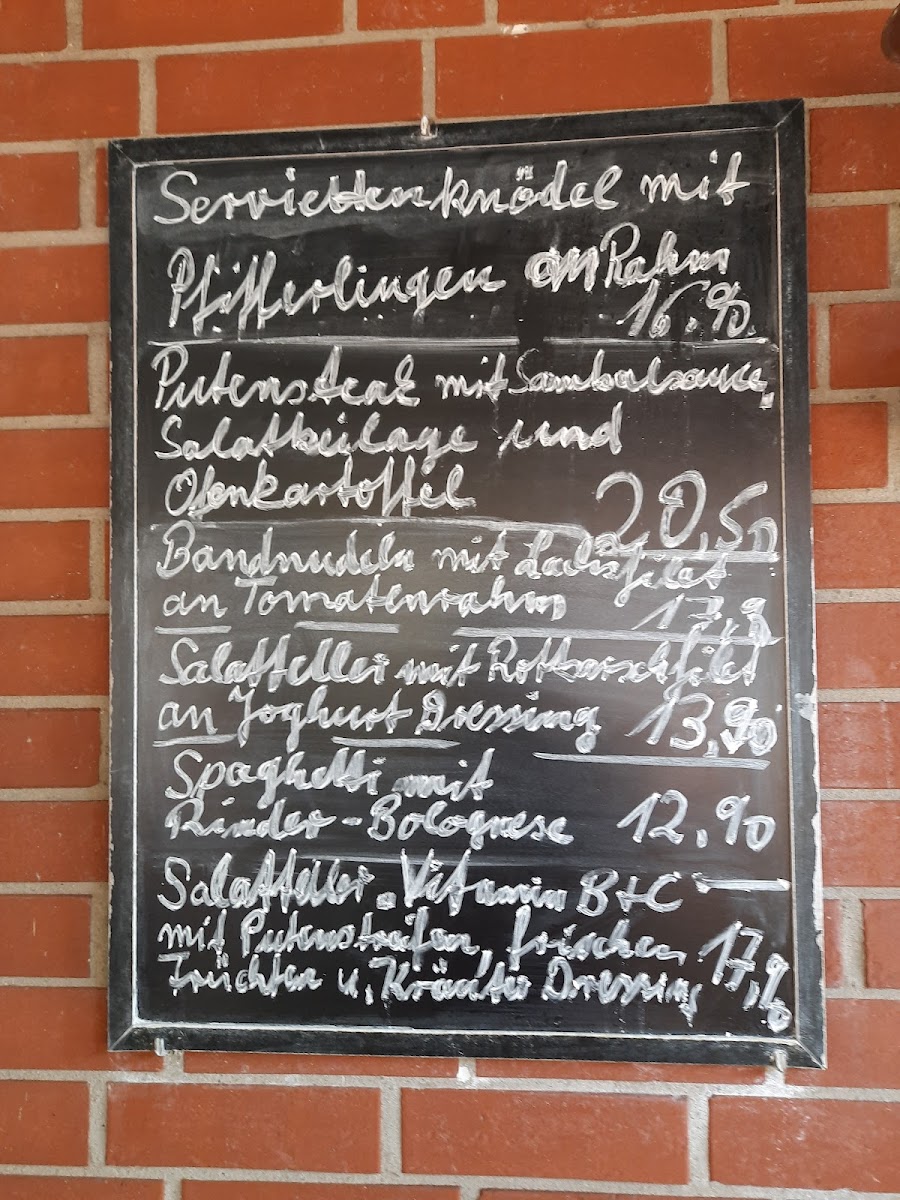 Serviettenknödel mit
Pfifferlingen an Rahm
16.90
Putensteak mit Sambalsauce,
Salatbeilage und
Ofenkartoffel 20,50
Bandnudeln mit Lachsfilet
an Tomatenrahm 17,9
Salatteller mit Rotbarschfilet
an Joghurt Dressing 13,90
Spaghetti mit
Rinder-Bolognese 12,90
Salatteller "Vitamin B+C
mit Putenstreifen, frischen 17,90
Früchten u, Kräuter Dressing